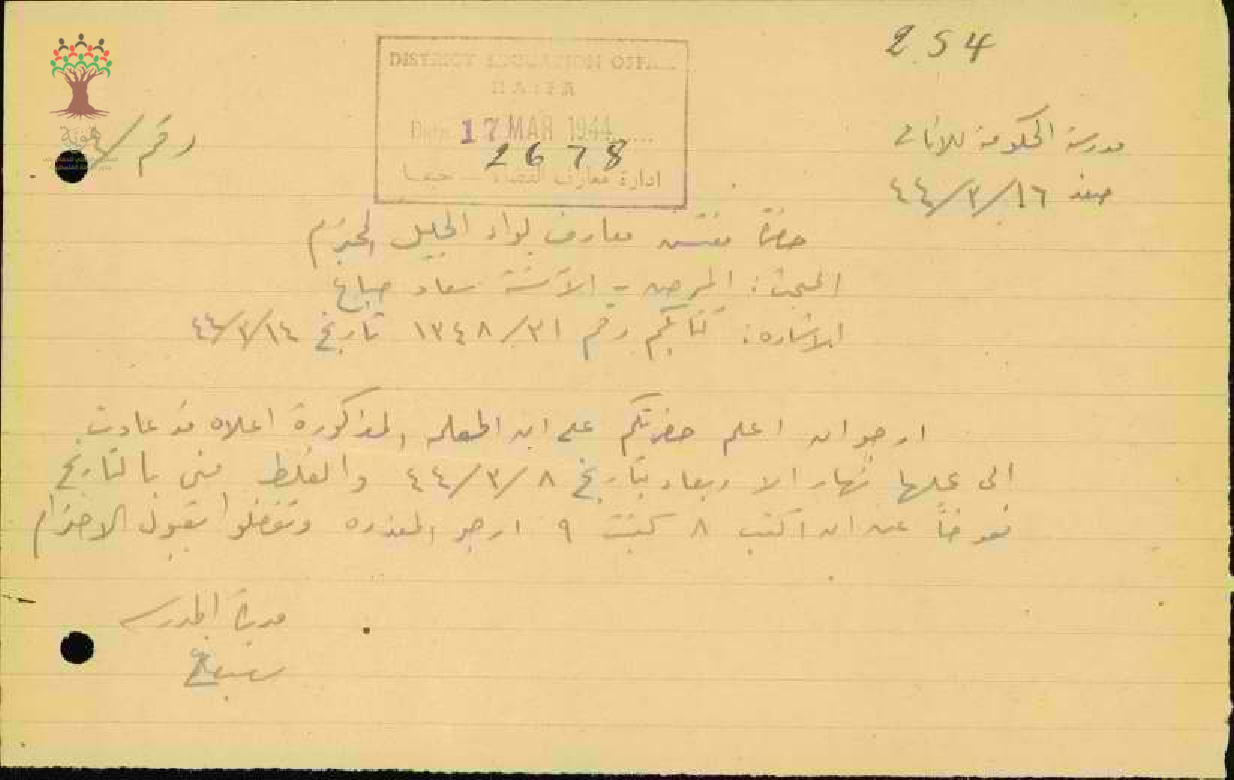 254
DISTRICT EDUCATION OFFICE
HAIFA
Date 17 MAR 1944
2678
ادارة معارف القضاء — حيفا
هوية
رقم /
مدرسة الحكومة للاناث
صفد ١٦/٣/٤٤
حضرة مفتش معارف لواء الجليل المحترم
المبحث: المرض - الآنسة سعاد صباغ
الاشارة: كتابكم رقم ١٣٤٨/٣١ تاريخ ٤٤/٣/١٤
ارجو ان اعلم حضرتكم على ان المعلمه المذكورة اعلاه قد عادت
الى عملها نهار الاربعاء بتاريخ ٤٤/٣/٨ والغلط مني بالتاريخ
فعوضاً عن ان اكتب ٨ كتبت ٩ ارجو المعذره وتفضلوا بقبول الاحترام
مديرة المدرسه